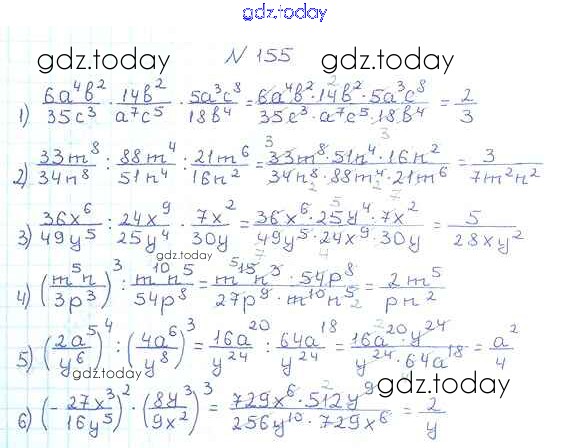 gdz.today
gdz.today gdz.today
N 155
1) 6a⁴b²/35c³ · 14b²/a⁷c⁵ · 5a³c⁸/18b⁴ = 6a⁴b²·14b²·5a³c⁸/35c³·a⁷c⁵·18b⁴ = 2/3
2) 33m⁸/34n⁸ : 88m⁴/51n⁴ : 21m⁶/16n² = 33m⁸·51n⁴·16n²/34n⁸·88m⁴·21m⁶ = 3/7m²n²
3) 36x⁶/49y⁵ : 24x⁹/25y⁴ · 7x²/30y = 36x⁶·25y⁴·7x²/49y⁵·24x⁹·30y = 5/28xy²
gdz.today
4) (m⁵n/3p³)³ : m¹⁰n⁵/54p⁸ = m¹⁵n³·54p⁸/27p⁹·m¹⁰n⁵ = 2m⁵/pn²
5) (2a⁵/y⁶)⁴ : (4a⁶/y⁸)³ = 16a²⁰/y²⁴ : 64a¹⁸/y²⁴ = 16a²⁰y²⁴/y²⁴·64a¹⁸ = a²/4
gdz.today
gdz.today gdz.today
6) (-27x³/16y⁵)² · (8y³/9x²)³ = 729x⁶·512y⁹/256y¹⁰·729x⁶ = 2/y